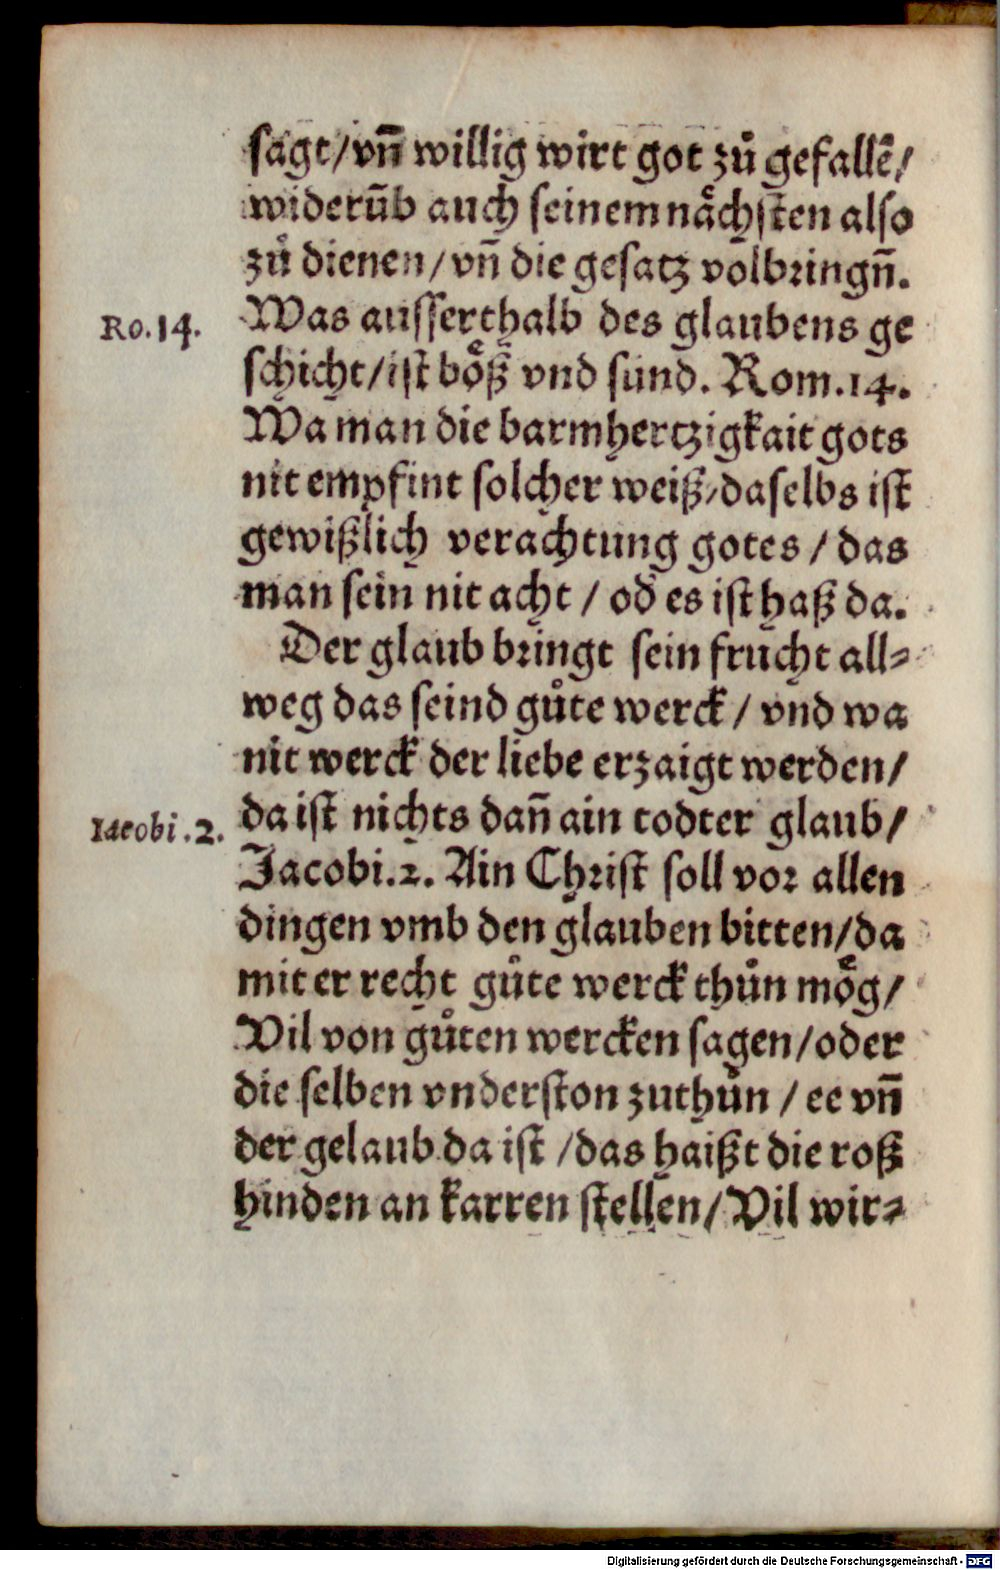 sagt/vn̄ willig wirt got zů gefallē/
widerūb auch seinem nåchsten also
zů dienen/vn̄ die gesatz volbringn̄.
Ro.14. Was ausserthalb des glaubens ge
schicht/ist bo̊ß vnd sünd. Rom.14.
Wa man die barmhertzigkait gots
nit empfint solcher weiß/daselbs ist
gewißlich verachtung gotes / das
man sein nit acht / od̄ es ist haß da.
Der glaub bringt sein frucht all⸗
weg das seind gůte werck / vnd wa
nit werck der liebe erzaigt werden/
Iacobi.2. da ist nichts dan̄ ain todter glaub/
Jacobi.2. Ain Christ soll vor allen
dingen vmb den glauben bitten/da
mit er recht gůte werck thůn moͤg/
Vil von gůten wercken sagen/oder
die selben vnderston zuthůn / ee vn̄
der gelaub da ist /das haißt die roß
hinden an karren stellen/Vil wir⸗
Digitalisierung gefördert durch die Deutsche Forschungsgemeinschaft - DFG